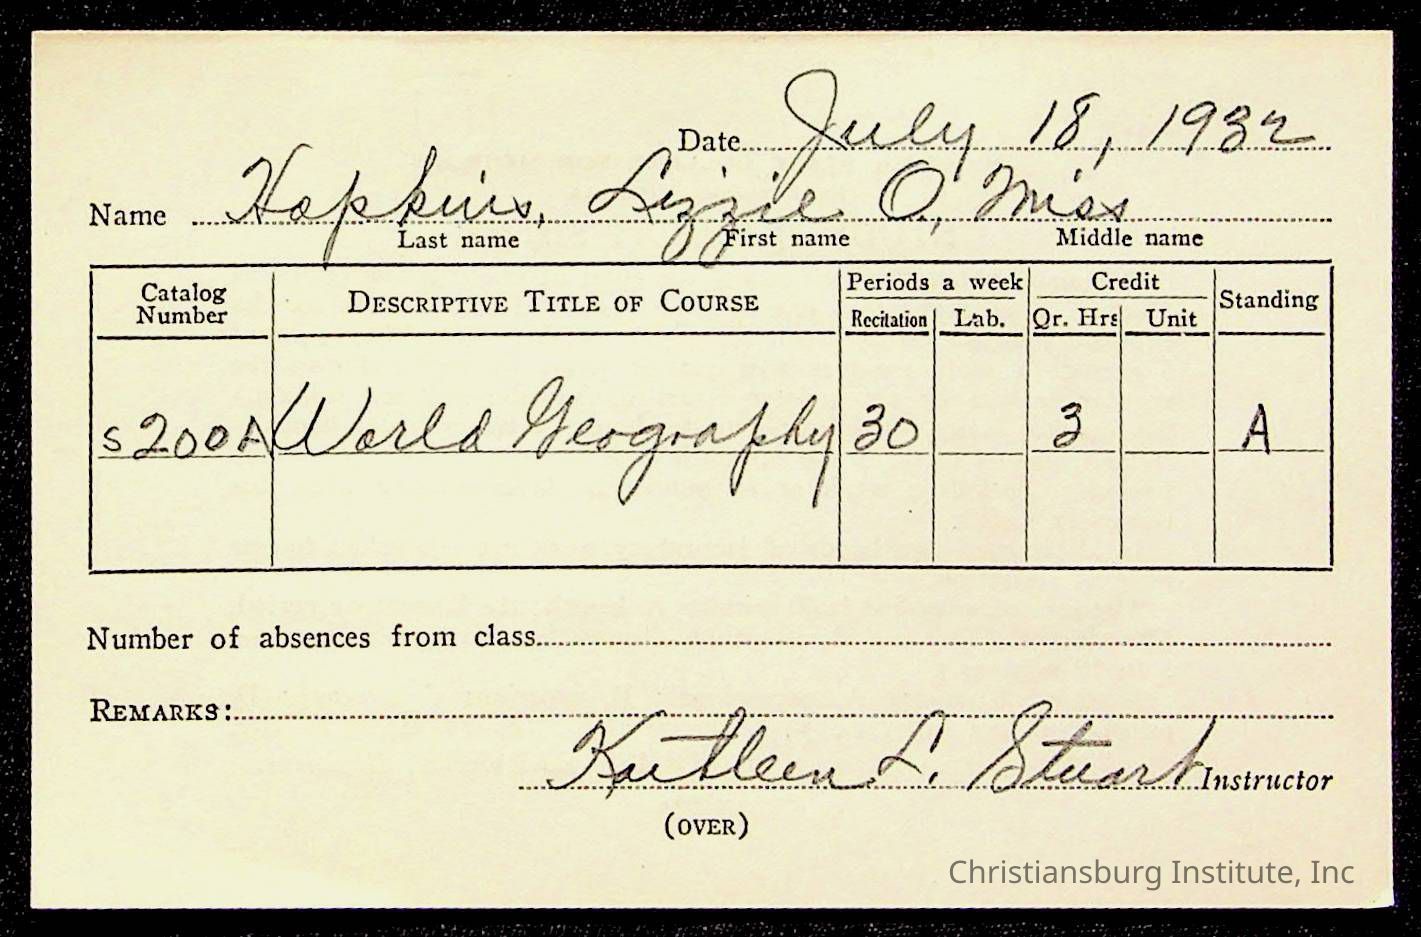 Date July 18, 1932
Name Hopkins, Lizzie O., Miss
Last name First name Middle name
Catalog Number DESCRIPTIVE TITLE OF COURSE Periods a week Credit Standing
Recitation Lab. Qr. Hrs Unit
S200A World Geography 30 3 A
Number of absences from class
REMARKS:
Kathleen L. Stuart Instructor
(OVER)
Christiansburg Institute, Inc